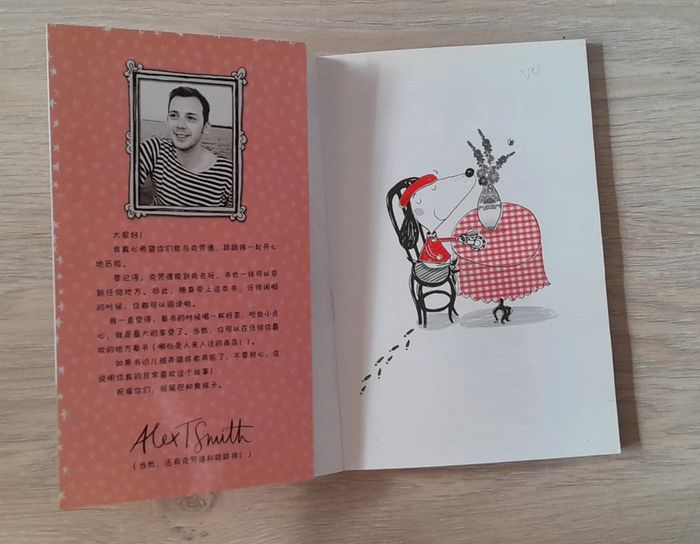 大家好！
我真心希望你们能与克劳德、跳跳袜一起开心
地历险。
要记得，克劳德能到处去玩，书也一样可以带
到任何地方。因此，随身带上这本书，任何闲暇
的时候，你都可以阅读啦。
我一直觉得，看书的时候喝一杯好茶，吃些小点
心，就是最大的享受了。当然，你可以在任何你喜
欢的地方看书（哪怕是人来人往的商店！）。
如果书边儿越弄皱或者弄脏了，不要担心，这
说明你真的非常喜欢这个故事！
祝福你们，摇尾巴和臭袜子。
Alex T Smith
（当然，还有克劳德和跳跳袜！）